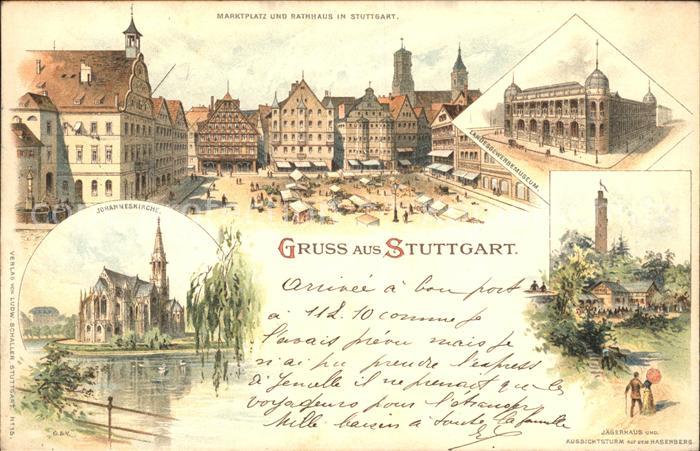 MARKTPLATZ UND RATHHAUS IN STUTTGART.
LANDESGEWERBEMUSEUM.
JOHANNESKIRCHE.
GRUSS AUS STUTTGART.
Arrivée à bon port
à 11 h. 10 comme je
l'avais prévu mais je
n'ai pu prendre l'express
il ne prenait que les
voyageurs pour l'étranger
Mille baisers à toute la famille
VERLAG VON LUDW. SCHALLER, STUTTGART. Nº 15.
G.&V.
JÄGERHAUS UND
AUSSICHTSTURM AUF DEM HASENBERG.